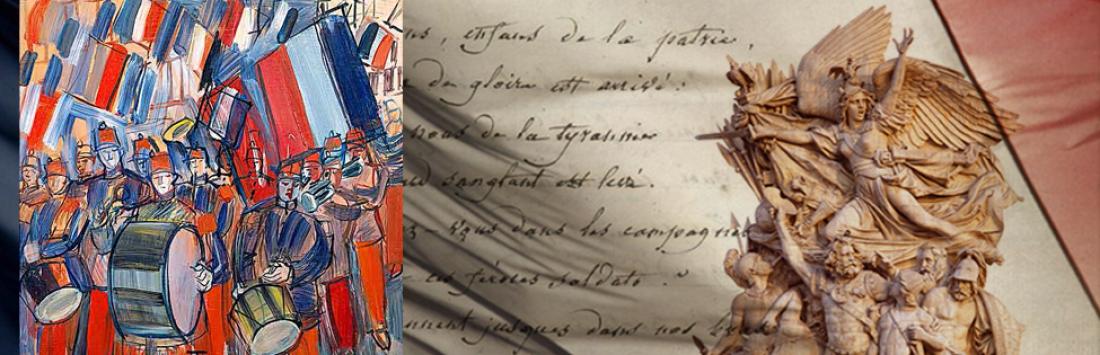 ns, enfans de la patrie,
de gloire est arrivé :
nous de la tyrannie
sanglant est levé.
z-vous dans les campagnes
ces féroces soldats ?
nnent jusques dans nos bras